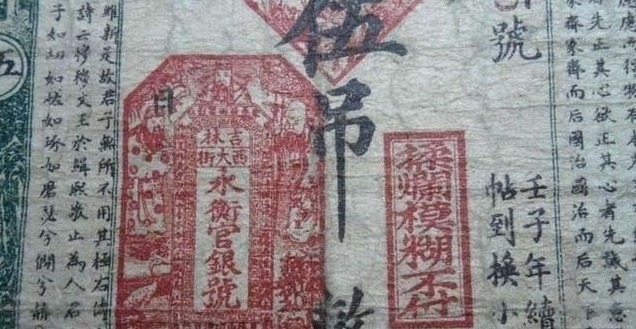 先正其心欲正其心者先誠其意
家齊家齊而后國治國治而后天下
號
壬子年續
帖到換小
揉爛模糊不付
伍吊
吉林
西大街
永衡官銀號
日
維新是故君子無所不用其極右傳
詩云穆穆文王於緝熙敬止為人君
子如切如磋如琢如磨瑟兮僩兮赫
五